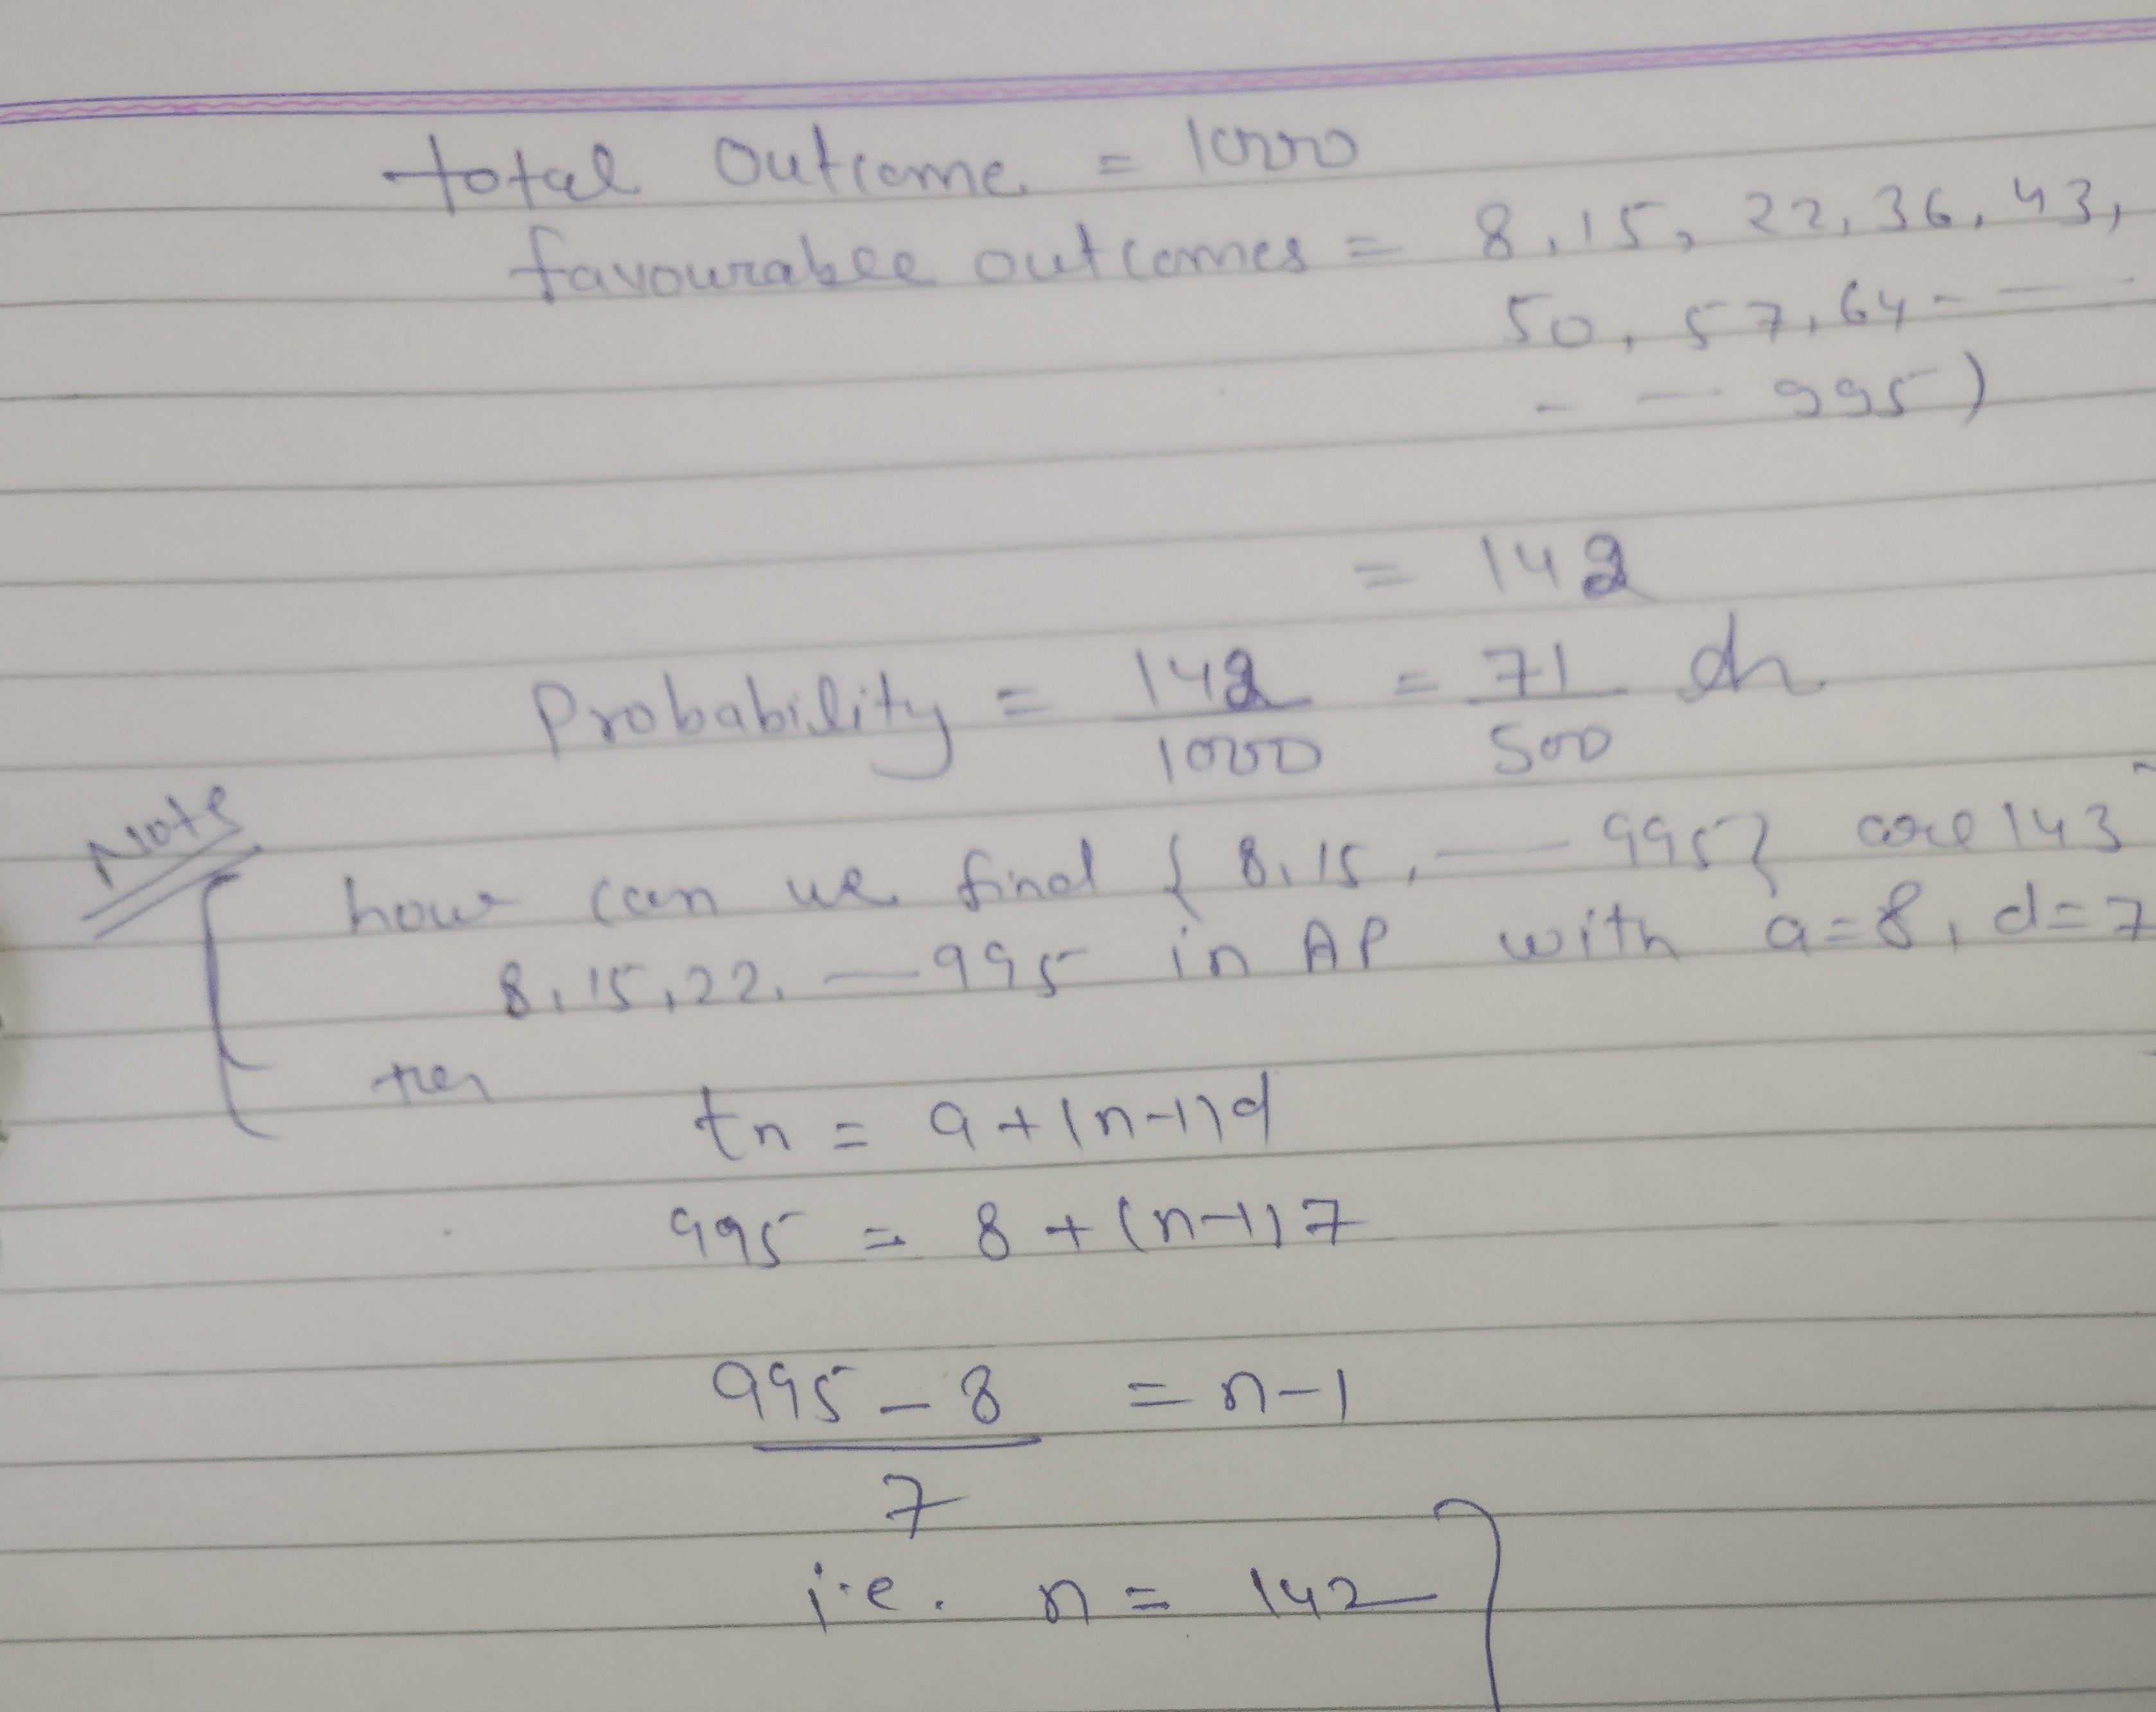 total outcome = 1000
favourable outcomes = 8, 15, 22, 36, 43,
50, 57, 64 - —
- — 995)
= 142
Probability = 142/1000 = 71/500
Note
how can we find { 8, 15, — 995} are 143
8, 15, 22, — 995 in AP with a=8, d=7
tn = a+(n-1)d
995 = 8 + (n-1)7
995 - 8 = n-1
7
i.e. n = 142